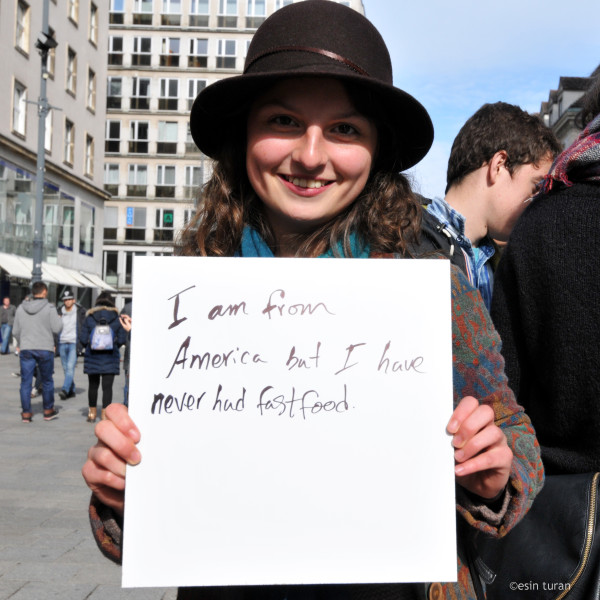 I am from
America but I have
never had fastfood.
©esin turan